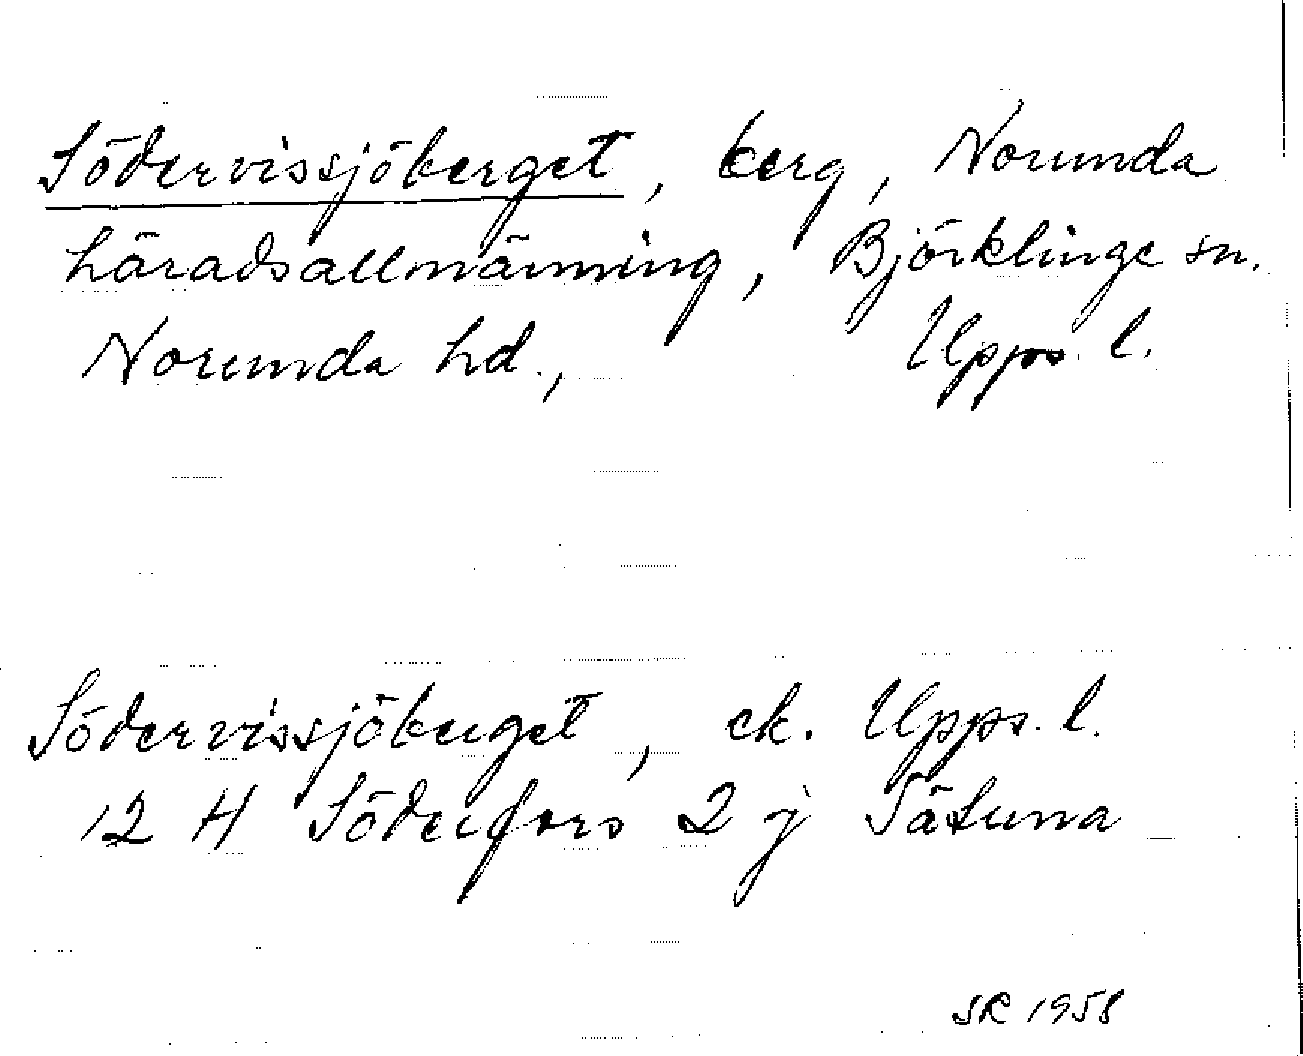 Södervissjöberget, berg, Norunda
häradsallmänning, Björklinge sn.
Norunda hd., Upps. l.
Södervissjöberget, ek. Upps. l.
12 H Söderfors 2 j Sätuna
SR 1958